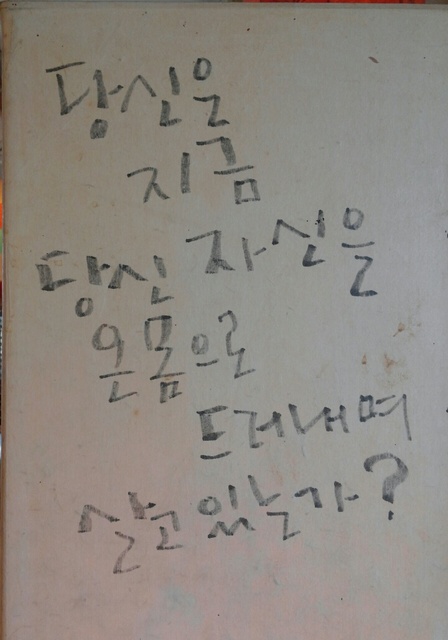 당신은
지금
당신 자신을
온몸으로
드러내며
살고 있는가?